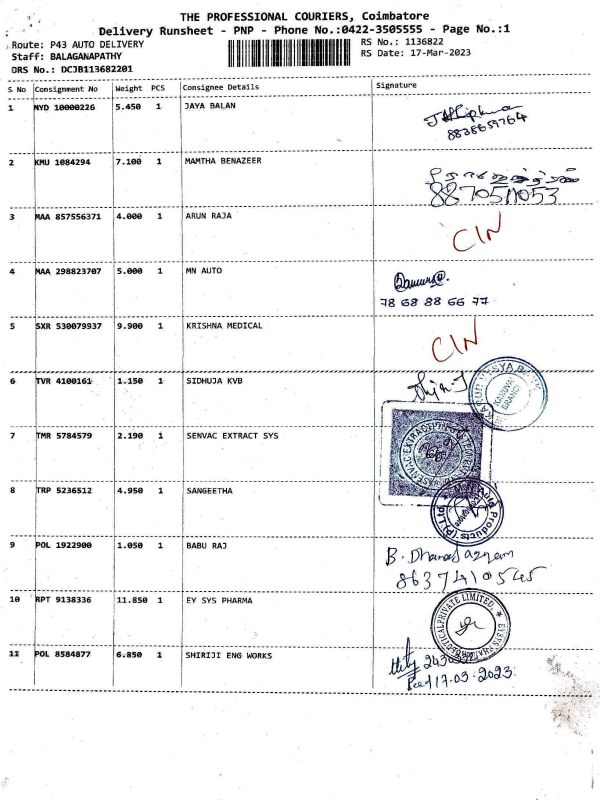 THE PROFESSIONAL COURIERS, Coimbatore
Delivery Runsheet - PNP - Phone No.:0422-3505555 - Page No.:1
Route: P43 AUTO DELIVERY
RS No.: 1136822
Staff: BALAGANAPATHY
RS Date: 17-Mar-2023
DRS No.: DCJB113682201
S No Consignment No Weight PCS Consignee Details Signature
1 MYD 10000226 5.450 1 JAYA BALAN
8838659764
2 KMU 1084294 7.100 1 MAMTHA BENAZEER
8870511053
3 MAA 857556371 4.000 1 ARUN RAJA
CIN
4 MAA 298823707 5.000 1 MN AUTO
78 68 88 66 77
5 SXR 530079937 9.900 1 KRISHNA MEDICAL
CIN
6 TVR 4100161 1.150 1 SIDHUJA KVB
7 TMR 5784579 2.190 1 SENVAC EXTRACT SYS
8 TRP 5236512 4.950 1 SANGEETHA
Auto Products (P) Ltd
9 POL 1922900 1.050 1 BABU RAJ
B.
8637410545
10 RPT 9138336 11.850 1 EY SYS PHARMA
PRIVATE LIMITED
11 POL 8584877 6.850 1 SHIRIJI ENG WORKS
17.03.2023